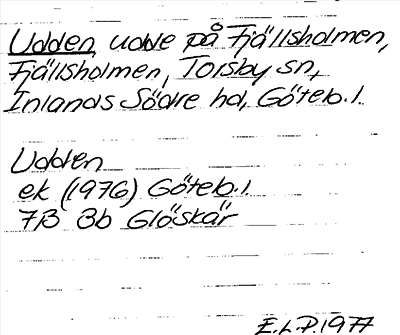 Udden, udde på Fjällsholmen,
Fjällsholmen, Torsby sn,
Inlands Södre hd, Göteb.l.
Udden
ek (1976) Göteb.l.
7B 3b Glöskär
E.L.P.1977